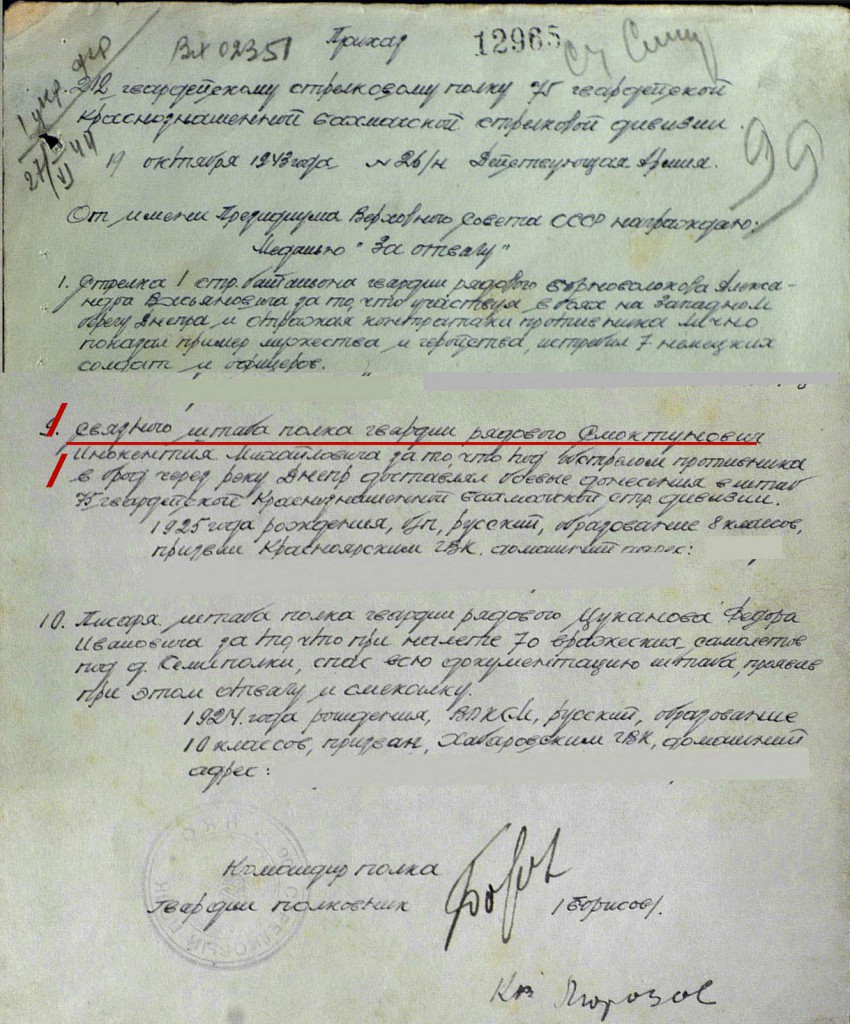 Вх 02351 Приказ 12965
212 гвардейскому стрелковому полку 75 гвардейской
Краснознаменной Бахмачской стрелковой дивизии.
19 октября 1943 года № 26/н Действующая Армия.
99
От имени Президиума Верховного Совета СССР награждаю:
Медалью "За отвагу"
1. Стрелка 1 стр. батальона гвардии рядового Алекса-
ндра за то, что участвуя в боях на Западном
берегу Днепра и отражая контратаки противника лично
показал пример мужества и геройства, истребил 7 немецких
солдат и офицеров.
9. Связного штаба полка гвардии рядового Смоктунович
Инокентия Михайловича за то что под обстрелом противника
в брод через реку Днепр доставлял боевые донесения в штаб
75 гвардейской Краснознаменной Бахмачской стр. дивизии.
1925 года рождения, б/п, русский, образование 8 классов,
призван Красноярским ГВК, домашний адрес:
10. Писаря штаба полка гвардии рядового Цуканова Федора
Ивановича за то, что при налете 70 вражеских самолетов
под д. Семиполки, спас всю документацию штаба, проявив
при этом отвагу и смекалку.
1924 года рождения, ВЛКСМ, русский, образование
10 классов, призван, Хабаровским ГВК, домашний
адрес:
Командир полка
гвардии полковник /Борисов/.
Морозов